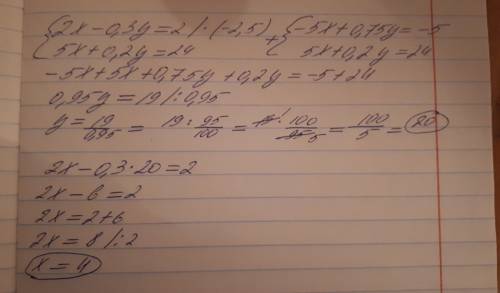 {2x-0,3y=2 /·(-2,5) + {-5x+0,75y=-5
{5x+0,2y=24 {5x+0,2y=24
-5x+5x+0,75y+0,2y=-5+24
0,95y=19 /:0,95
y=19/0,95= 19:95/100= 19·100/95= 100/5= 20
2x-0,3·20=2
2x-6=2
2x=2+6
2x=8 /:2
x=4